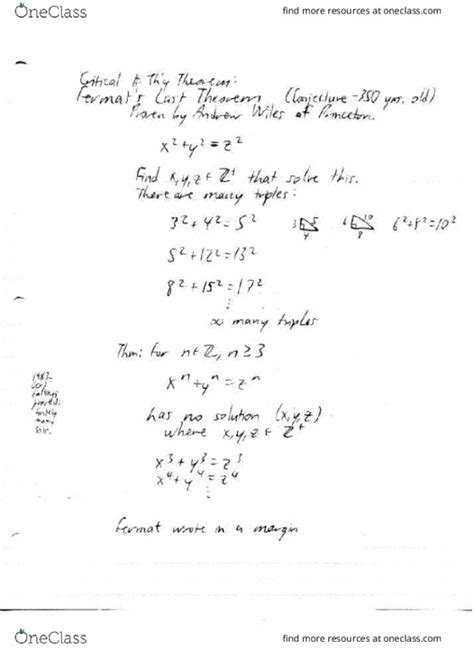 OneClass
find more resources at oneclass.com
Critical # Th'y Theorem:
Fermat's Last Theorem (Conjecture ~350 yrs. old)
Proven by Andrew Wiles at Princeton.
x² + y² = z²
Find x, y, z ∈ ℤ⁺ that solve this.
There are many triples:
3² + 4² = 5² 3 5 4 6 10 8 6² + 8² = 10²
5² + 12² = 13²
8² + 15² = 17²
⋮
∞ many triples
Thm: for n ∈ ℤ, n ≥ 3
xⁿ + yⁿ = zⁿ
has no solution (x, y, z)
where x, y, z ∈ ℤ⁺
x³ + y³ = z³
x⁴ + y⁴ = z⁴
⋮
Faltings
proved:
finitely
many
Fermat wrote in a margin
OneClass
find more resources at oneclass.com